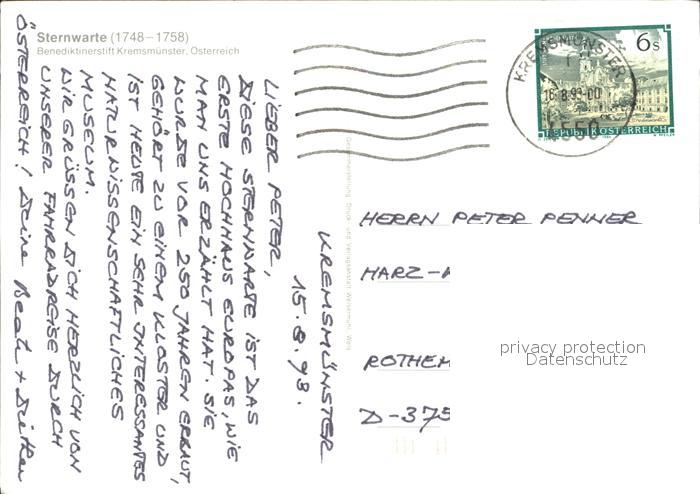 Sternwarte (1748–1758)
Benediktinerstift Kremsmünster, Österreich
KREMSMÜNSTER
15.8.93.
LIEBER PETER,
DIESE STERNWARTE IST DAS
ERSTE HOCHHAUS EUROPAS, WIE
MAN UNS ERZÄHLT HAT. SIE
WURDE VOR 250 JAHREN ERBAUT,
GEHÖRT ZU EINEM KLOSTER UND
IST HEUTE EIN SEHR INTERESSANTES
NATURWISSENSCHAFTLICHES
MUSEUM.
WIR GRÜSSEN DICH HERZLICH VON
UNSERER FAHRRADREISE DURCH
ÖSTERREICH! Deine
KREMSMÜNSTER
16.8.93-00
4550
6 S
REPUBLIK ÖSTERREICH
HERRN PETER PENNER
HARZ-
ROTHEM
D-375
privacy protection
Datenschutz